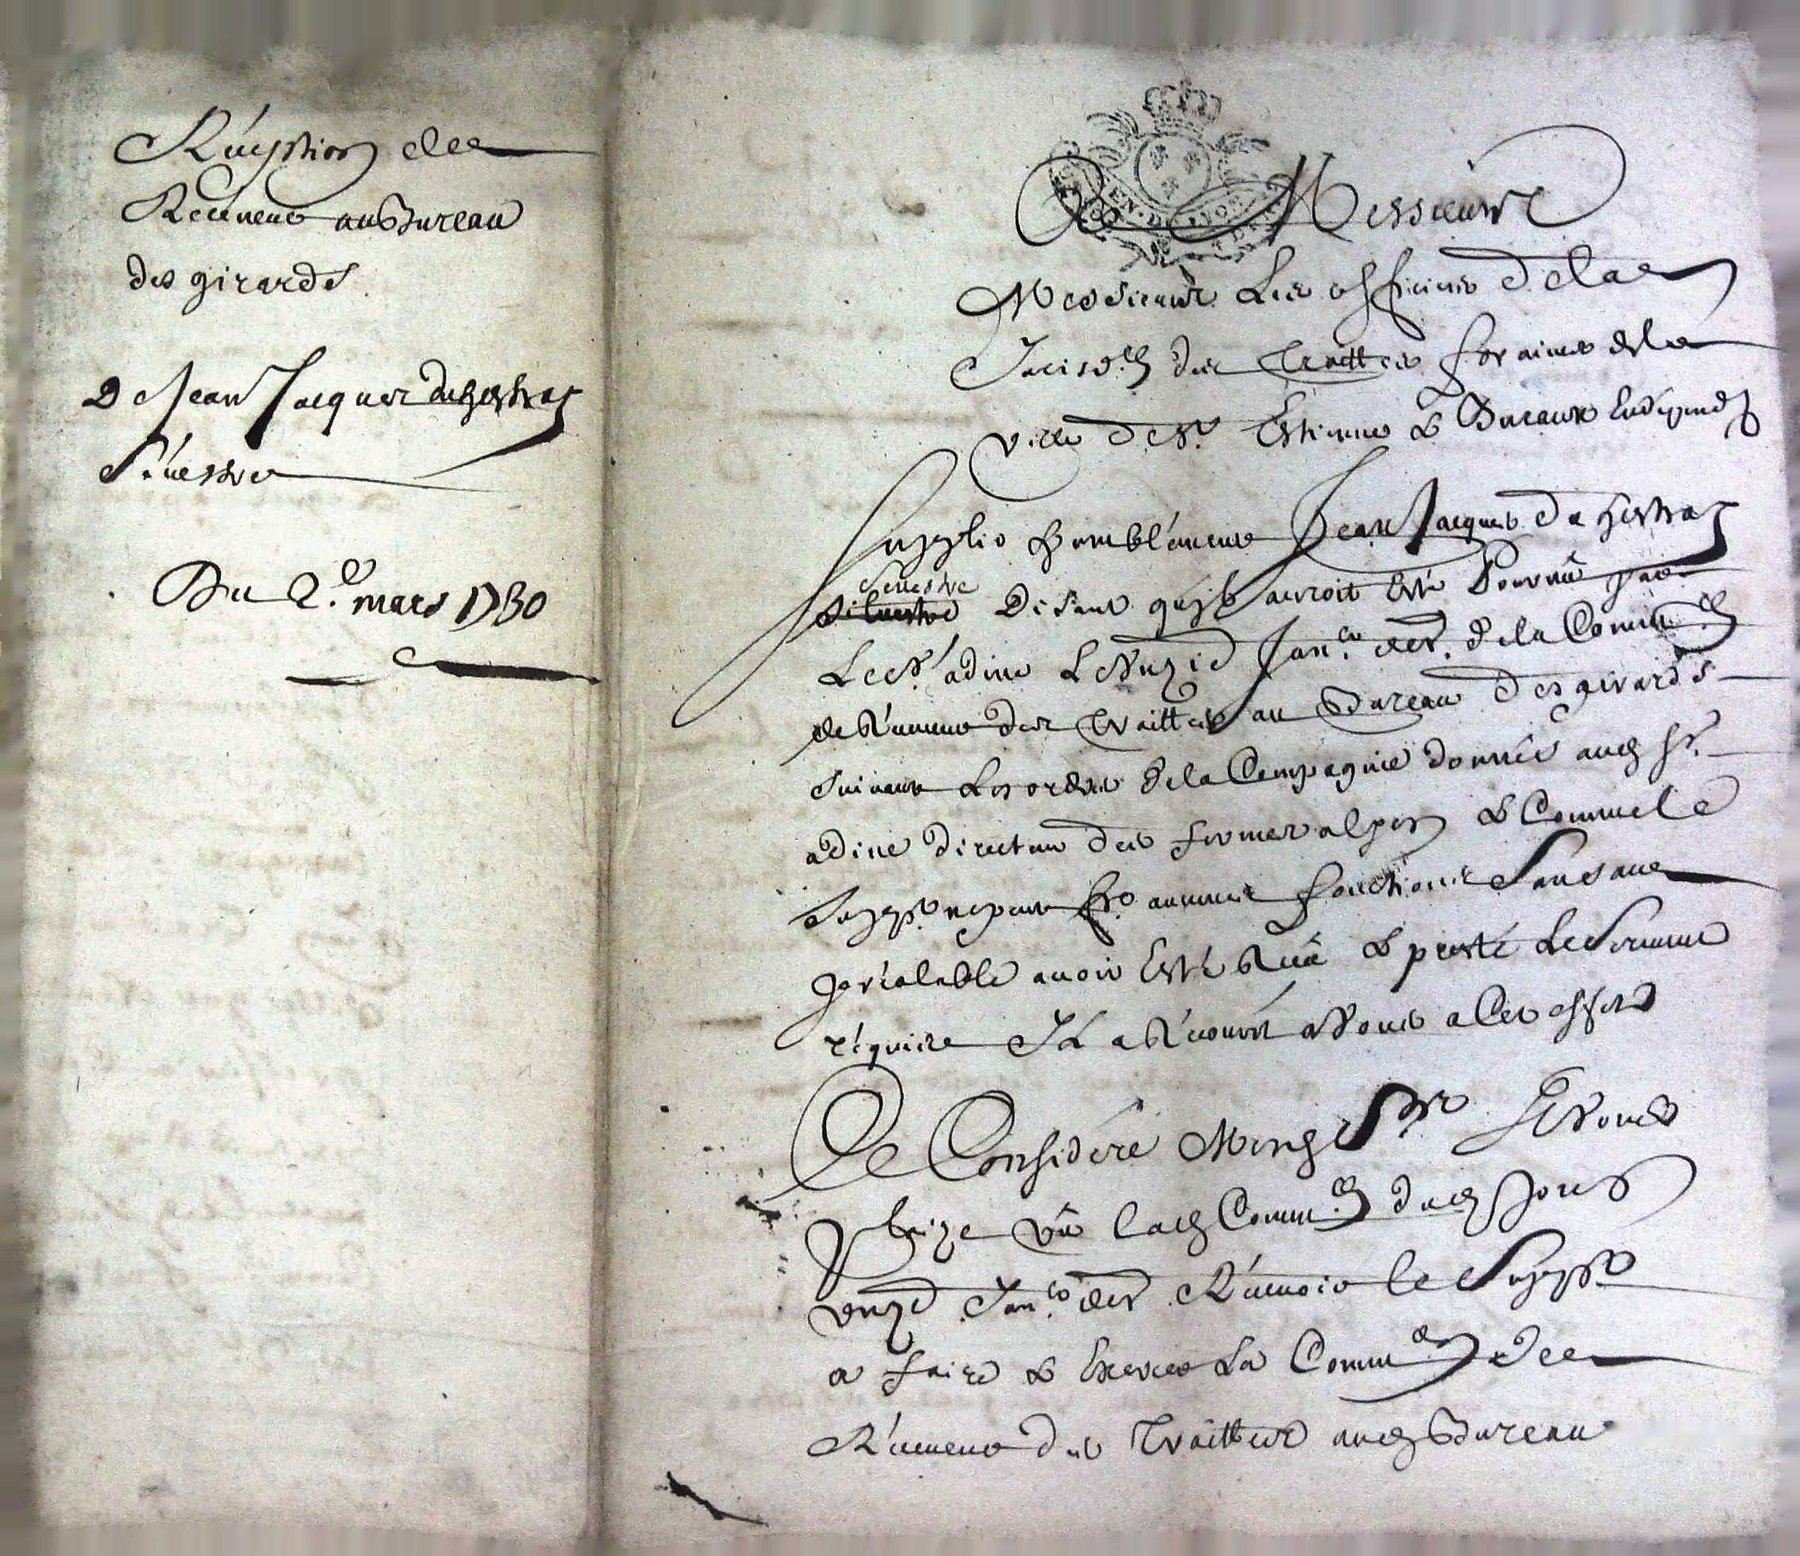 Réception de
Receveur au Bureau
des girards
De Jean Jacques duchestray
Senestre
Du 2.e mars 1730
GEN · DE LYON
A Messieurs
Messieurs Les officiers de la
Jurisd.on des Traittes foraines de la
ville de St. Estienne & Bureaux Endépend.
Supplie humblement Jean Jacques du chestray
Senestre
Disant qu'il auroit Esté Pourvû par
Le Sr. adine Le Vnzie Janr. der. de la Comm.on
de Receveur des Traittes au Bureau des girards
Suivant Les ordres de la Compagnie donnés aud. Sr.
adine directeur des fermes a lyon & Comme le
Suppt. ne peut fre. aucune fonctions Sans au
préalable avoir Esté Reçû & presté Le Serment
réquise Il a Recours a Vous a Ces effets
Ce Considéré Mesd. Srs. Il Vous
plaize vû lad. Comm.on dud. Jour
vnze Janr. der Recevoir le Suppt.
a faire & Exercer La Comm.on de
Receveur des Traittes aud. Bureau